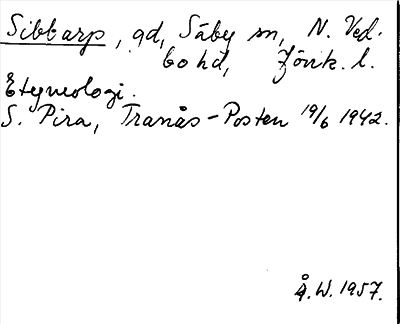 Sibbarp, gd, Säby sn, N. Ved-
bo hd, Jönk. l.
Etymologi.
S. Pira, Tranås-Posten 19/6 1942.
Å.W. 1957.